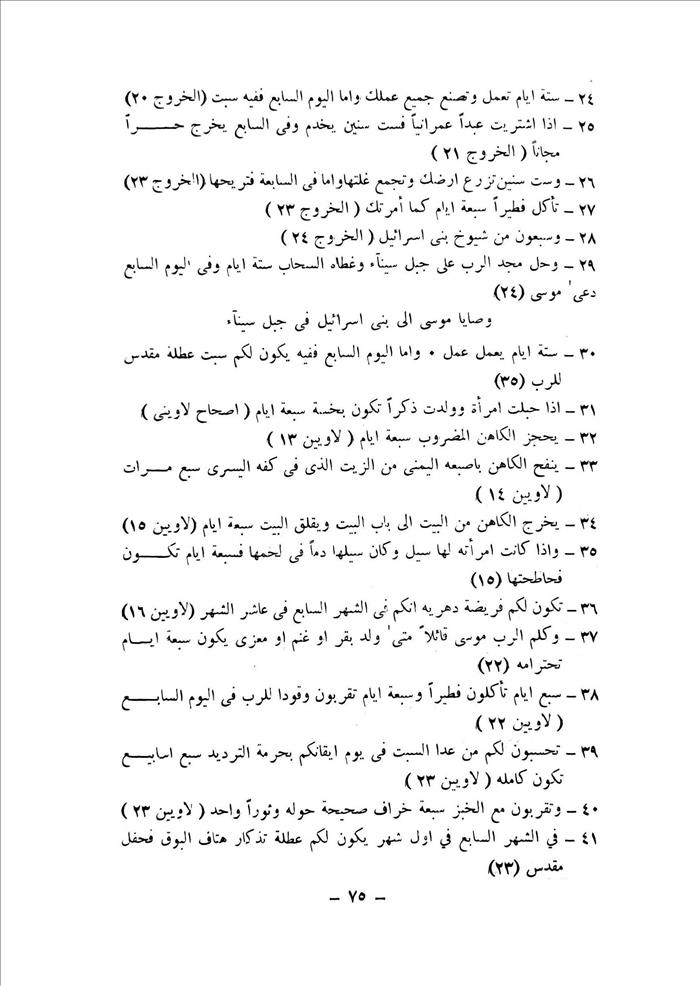 ٢٤ ـ ستة ايام تعمل وتصنع جميع عملك واما اليوم السابع ففيه سبت (الخروج ٢٠)
٢٥ ـ اذا اشتريت عبداً عمرانياً فست سنين يخدم وفى السابع يخرج حـــــراً
مجاناً ( الخروج ٢١ )
٢٦ ـ وست سنين تزرع ارضك وتجمع غلتها واما فى السابعة فتريحها (الخروج ٢٣)
٢٧ ـ تأكل فطيراً سبعة ايام كما أمرتك ( الخروج ٢٣ )
٢٨ ـ وسبعون من شيوخ بنى اسرائيل ( الخروج ٢٤ )
٢٩ ـ وحل مجد الرب على جبل سيناء وغطاه السحاب ستة ايام وفى اليوم السابع
دعى موسى (٢٤)
وصايا موسى الى بنى اسرائيل فى جبل سيناء
٣٠ ـ ستة ايام يعمل عمل ٠ واما اليوم السابع ففيه يكون لكم سبت عطلة مقدس
للرب (٣٥)
٣١ ـ اذا حبلت امرأة وولدت ذكراً تكون بخسة سبعة ايام ( اصحاح لاوينى )
٣٢ ـ يحجز الكاهن المضروب سبعة ايام ( لاويين ١٣ )
٣٣ ـ ينفح الكاهن باصبعه اليمنى من الزيت الذى فى كفه اليسرى سبع مـــرات
( لاويين ١٤ )
٣٤ ـ يخرج الكاهن من البيت الى باب البيت ويقلق البيت سبعة ايام (لاويين ١٥)
٣٥ ـ واذا كانت امرأته لها سيل وكان سيلها دماً فى لحمها فسبعة ايام تكـــون
فحاطحتها (١٥)
٣٦ ـ تكون لكم فريضة دهريه انكم فى الشهر السابع فى عاشر الشهر (لاويين ١٦)
٣٧ ـ وكلم الرب موسى قائلاً متى ولد بقر او غنم او معزى يكون سبعة ايـــام
تحترامه (٢٢)
٣٨ ـ سبع ايام تأكلون فطيراً وسبعة ايام تقربون وقودا للرب فى اليوم السابـــع
( لاويين ٢٢ )
٣٩ ـ تحسبون لكم من عدا السبت فى يوم ايقانكم بحرمة الترديد سبع اسابيـــع
تكون كامله ( لاويين ٢٣ )
٤٠ ـ وتقربون مع الخبز سبعة خراف صحيحة حوله وثوراً واحد ( لاويين ٢٣ )
٤١ ـ في الشهر السابع في اول شهر يكون لكم عطلة تذكار هتاف البوق فحفل
مقدس (٢٣)
ـ ٧٥ ـ